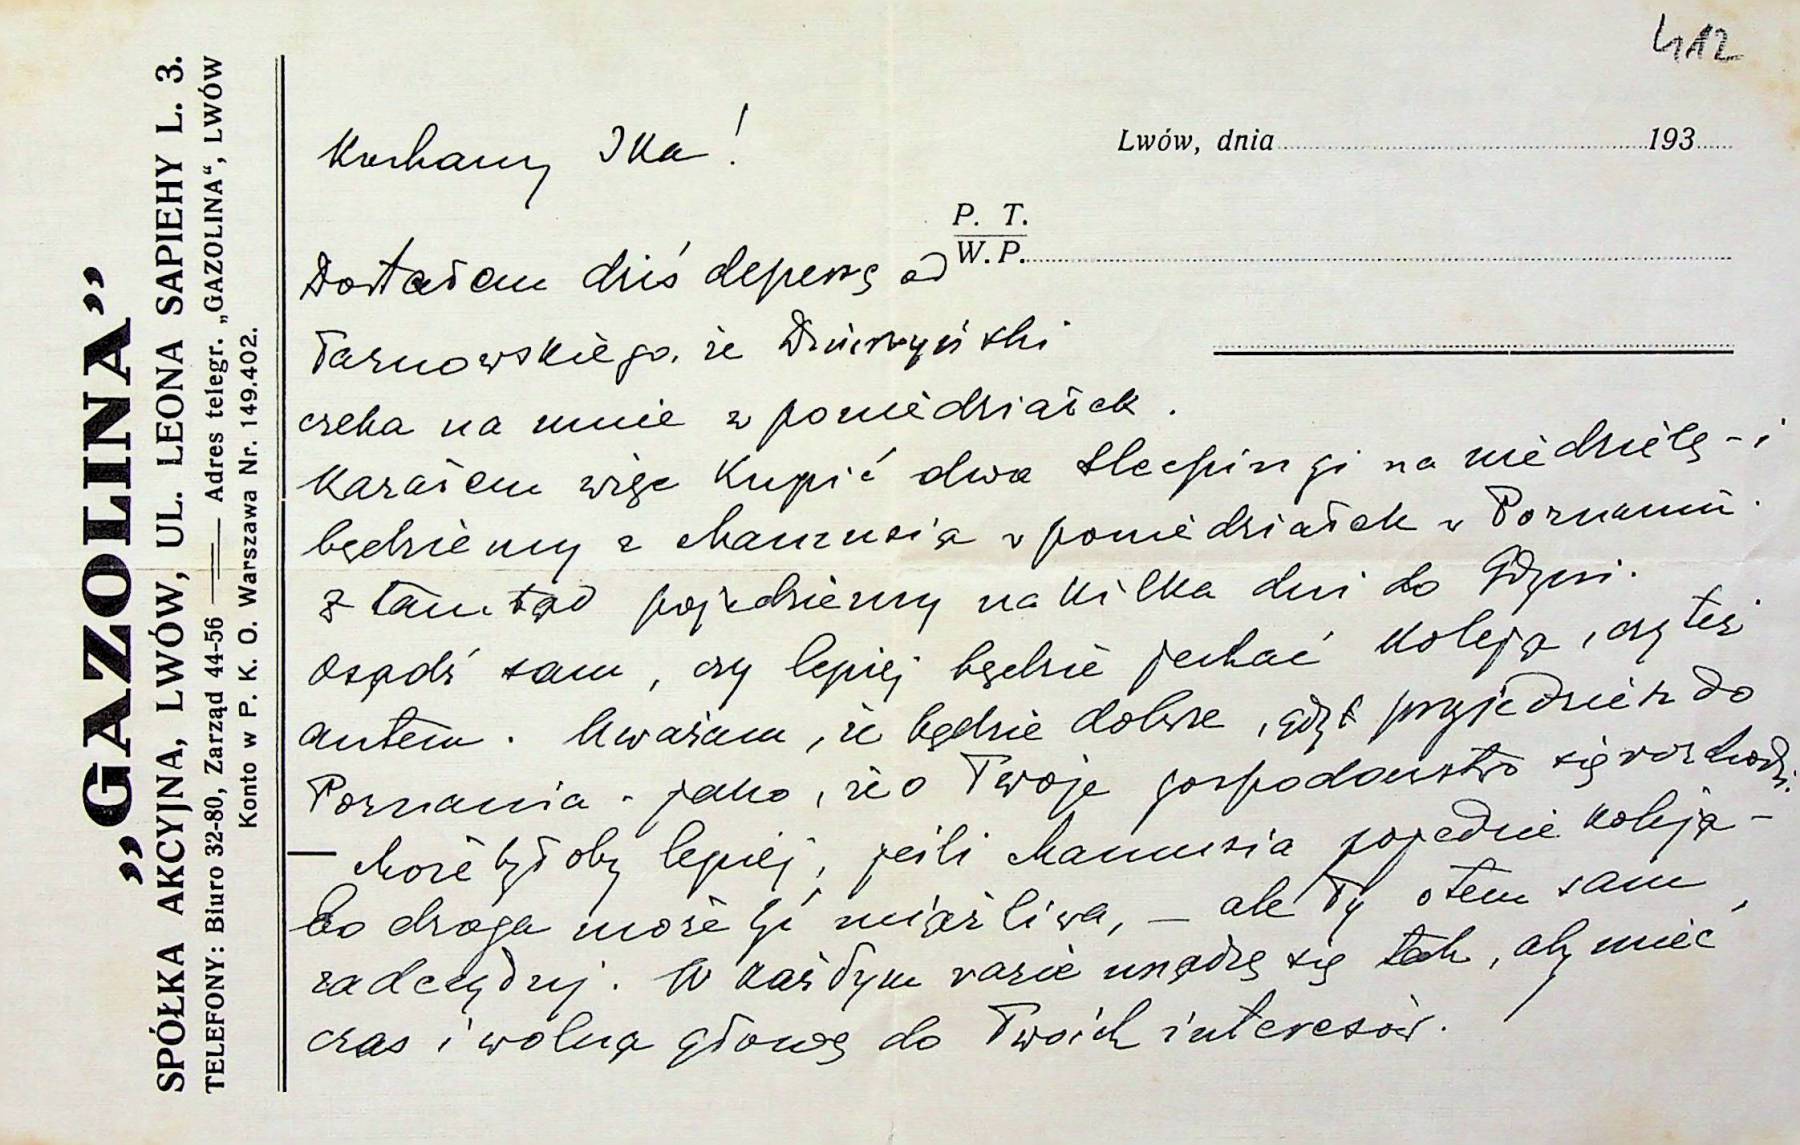 412
„GAZOLINA”
SPÓŁKA AKCYJNA, LWÓW, UL. LEONA SAPIEHY L. 3.
TELEFONY: Biuro 32-80, Zarząd 44-56 —— Adres telegr. „GAZOLINA“, LWÓW
Konto w P. K. O. Warszawa Nr. 149.402.
Lwów, dnia 193
P. T.
W. P.
Kochany IKa!
Dostałem dziś depeszę od
Tarnowskiego, że
czeka na mnie w poniedziałek.
Kazałem więc Kupić dwa sleepingi na niedzielę - i
będziemy z Mamusią w poniedziałek w Poznaniu.
Z tamtąd pojedziemy na Kilka dni do Gdyni.
Osądź sam, czy lepiej będzie jechać Koleją, czy też
autem. Uważam, że będzie dobrze, gdyż przyjedziesz do
Poznania - jako, że o Twoje gospodarstwo się rozchodzi.
— Może byłoby lepiej, jeśli Mamusia pojedzie Koleją -
bo droga może być uciążliwa, - ale Ty o tem sam
zadecyduj. W każdym razie urządzę się tak, aby mieć
czas i wolną głowę do Twoich interesów.